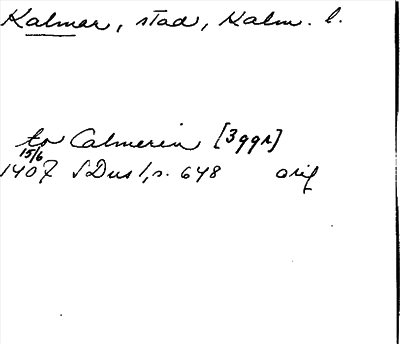 Kalmar, stad, Kalm. l.
to Calmerin [3ggr]
15/6
1407 SDns 1, s. 648 orig